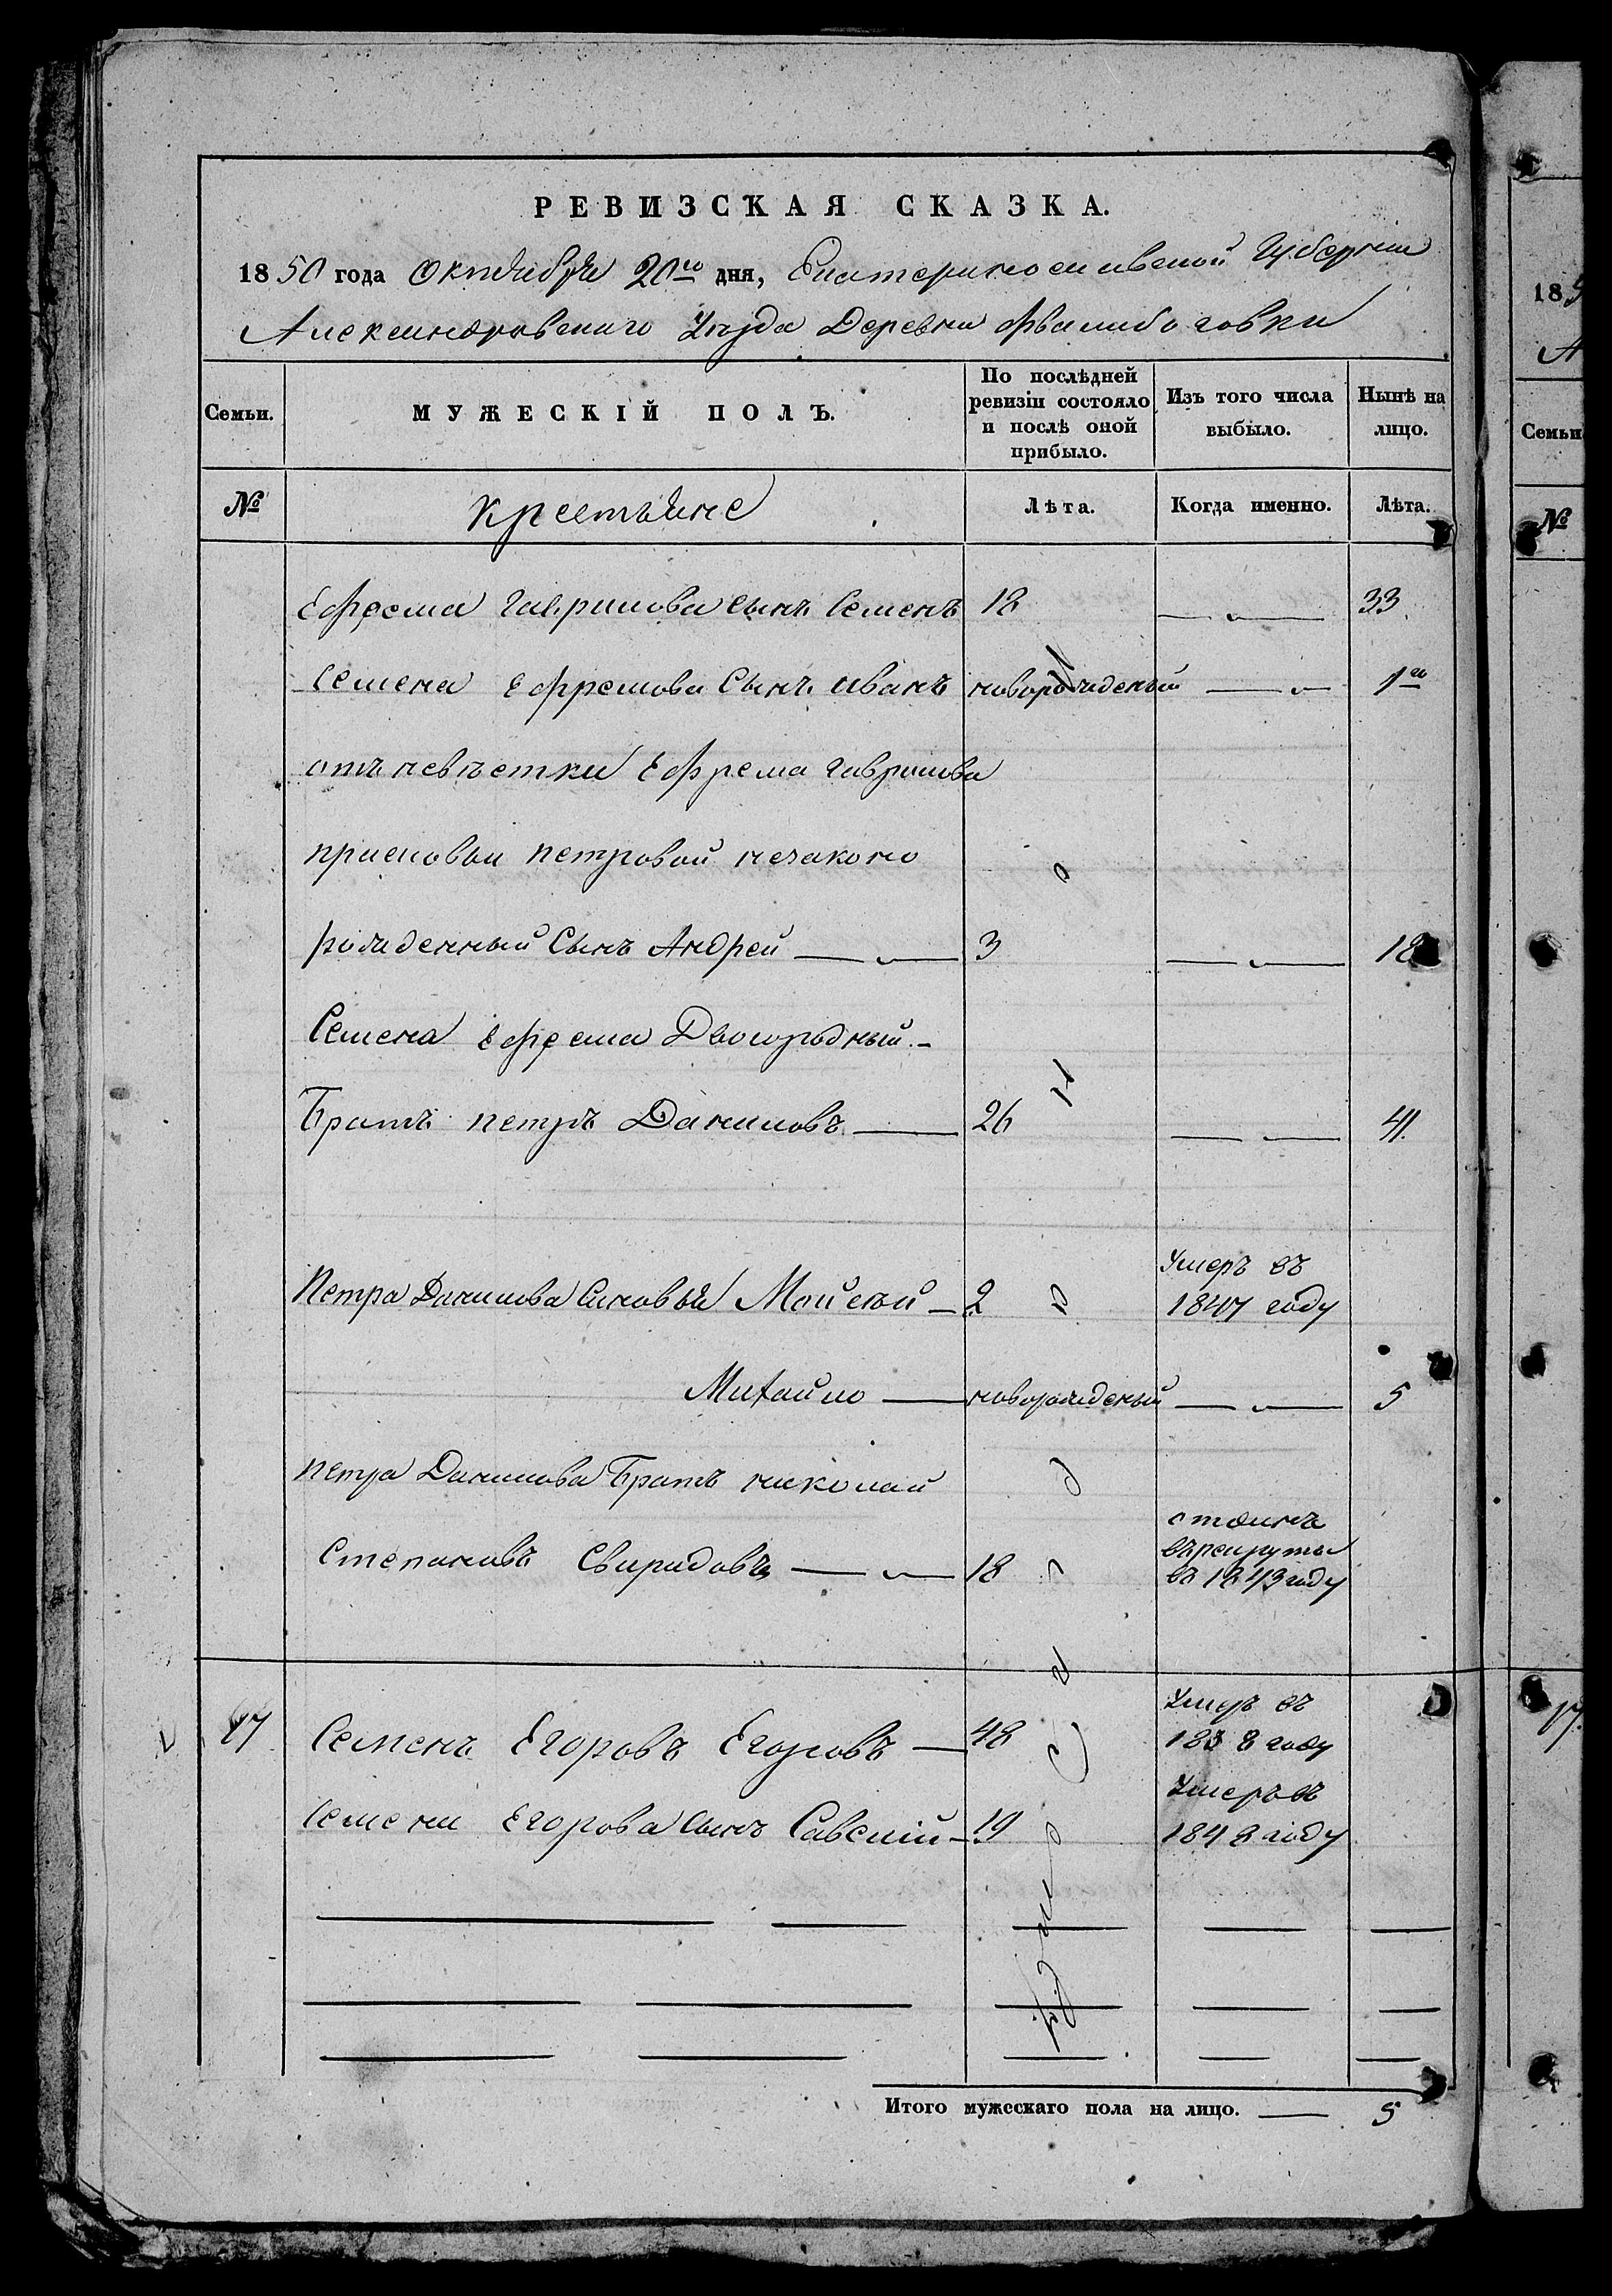 РЕВИЗСКАЯ СКАЗКА.
1850 года Октября 20го дня, Екатеринославской Губернии
Александровскаго Уезда Деревни
Семьи. МУЖЕСКІЙ ПОЛЪ. По послѣдней ревизіи состояло и послѣ оной прибыло. Изъ того числа выбыло. Нынѣ на лицо.
№ крестьяне Лѣта. Когда именно. Лѣта.
Ефрема Гаврилова сынъ Семенъ 18 33
Семена Ефремова Сынъ иванъ новорожденый 1го
отъ невѣстки Ефрема Гаврилова
петровой незаконо
рожденный Сынъ Андрей 3 18
Семена Ефрема Двоюродный
Братъ петръ Даниловъ 26 41.
Петра Данилова Синовья Мойсей 2 Умеръ въ 1847 году
Михайло новорожденый 5
петра Данилова Братъ николай
Степановъ Свиридовъ 18 отданъ въ рекруты въ 1843 году
17 Семенъ Егоровъ Егоровъ 48 Умеръ въ 1838 году
Семена Егорова сынъ Савелій 19 Умеръ въ 1848 году
Итого мужескаго пола на лицо. 5
185
А
Семьи
№
17